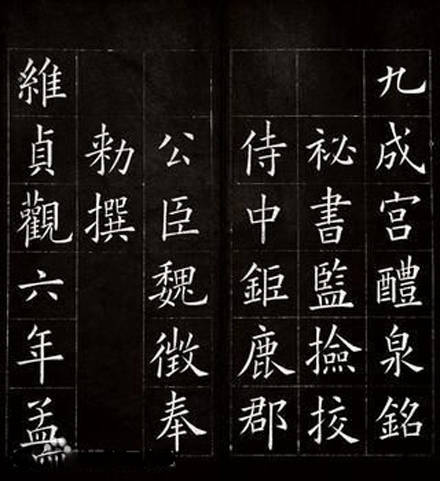 九成宮醴泉銘
祕書監撿挍
侍中鉅鹿郡
公臣魏徵奉
勅撰
維貞觀六年孟